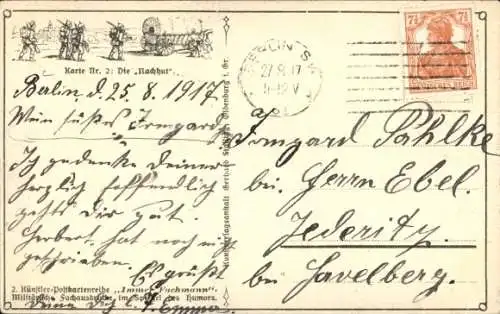 Karte Nr. 2: Die „Nachhut".
Berlin, d. 25. 8. 1917
Mein süßes Irmgard
Ich gedenke Deiner
herzlich hoffendlich
gehts Dir gut.
Herbert hat noch nicht
geschrieben.
Es grüßt
Emma
2. Künstler-Postkartenreihe „Immer Fachmann"
Militärische Fachausdrücke im Spiegel des Humors.
Kunstverlagsanstalt Gerhard Stalling, Oldenburg i. Gr.
BERLIN SW
27.8.17
7½
7½
Irmgard Pählke
bei Herrn Ebel.
Jederitz.
bei Havelberg.